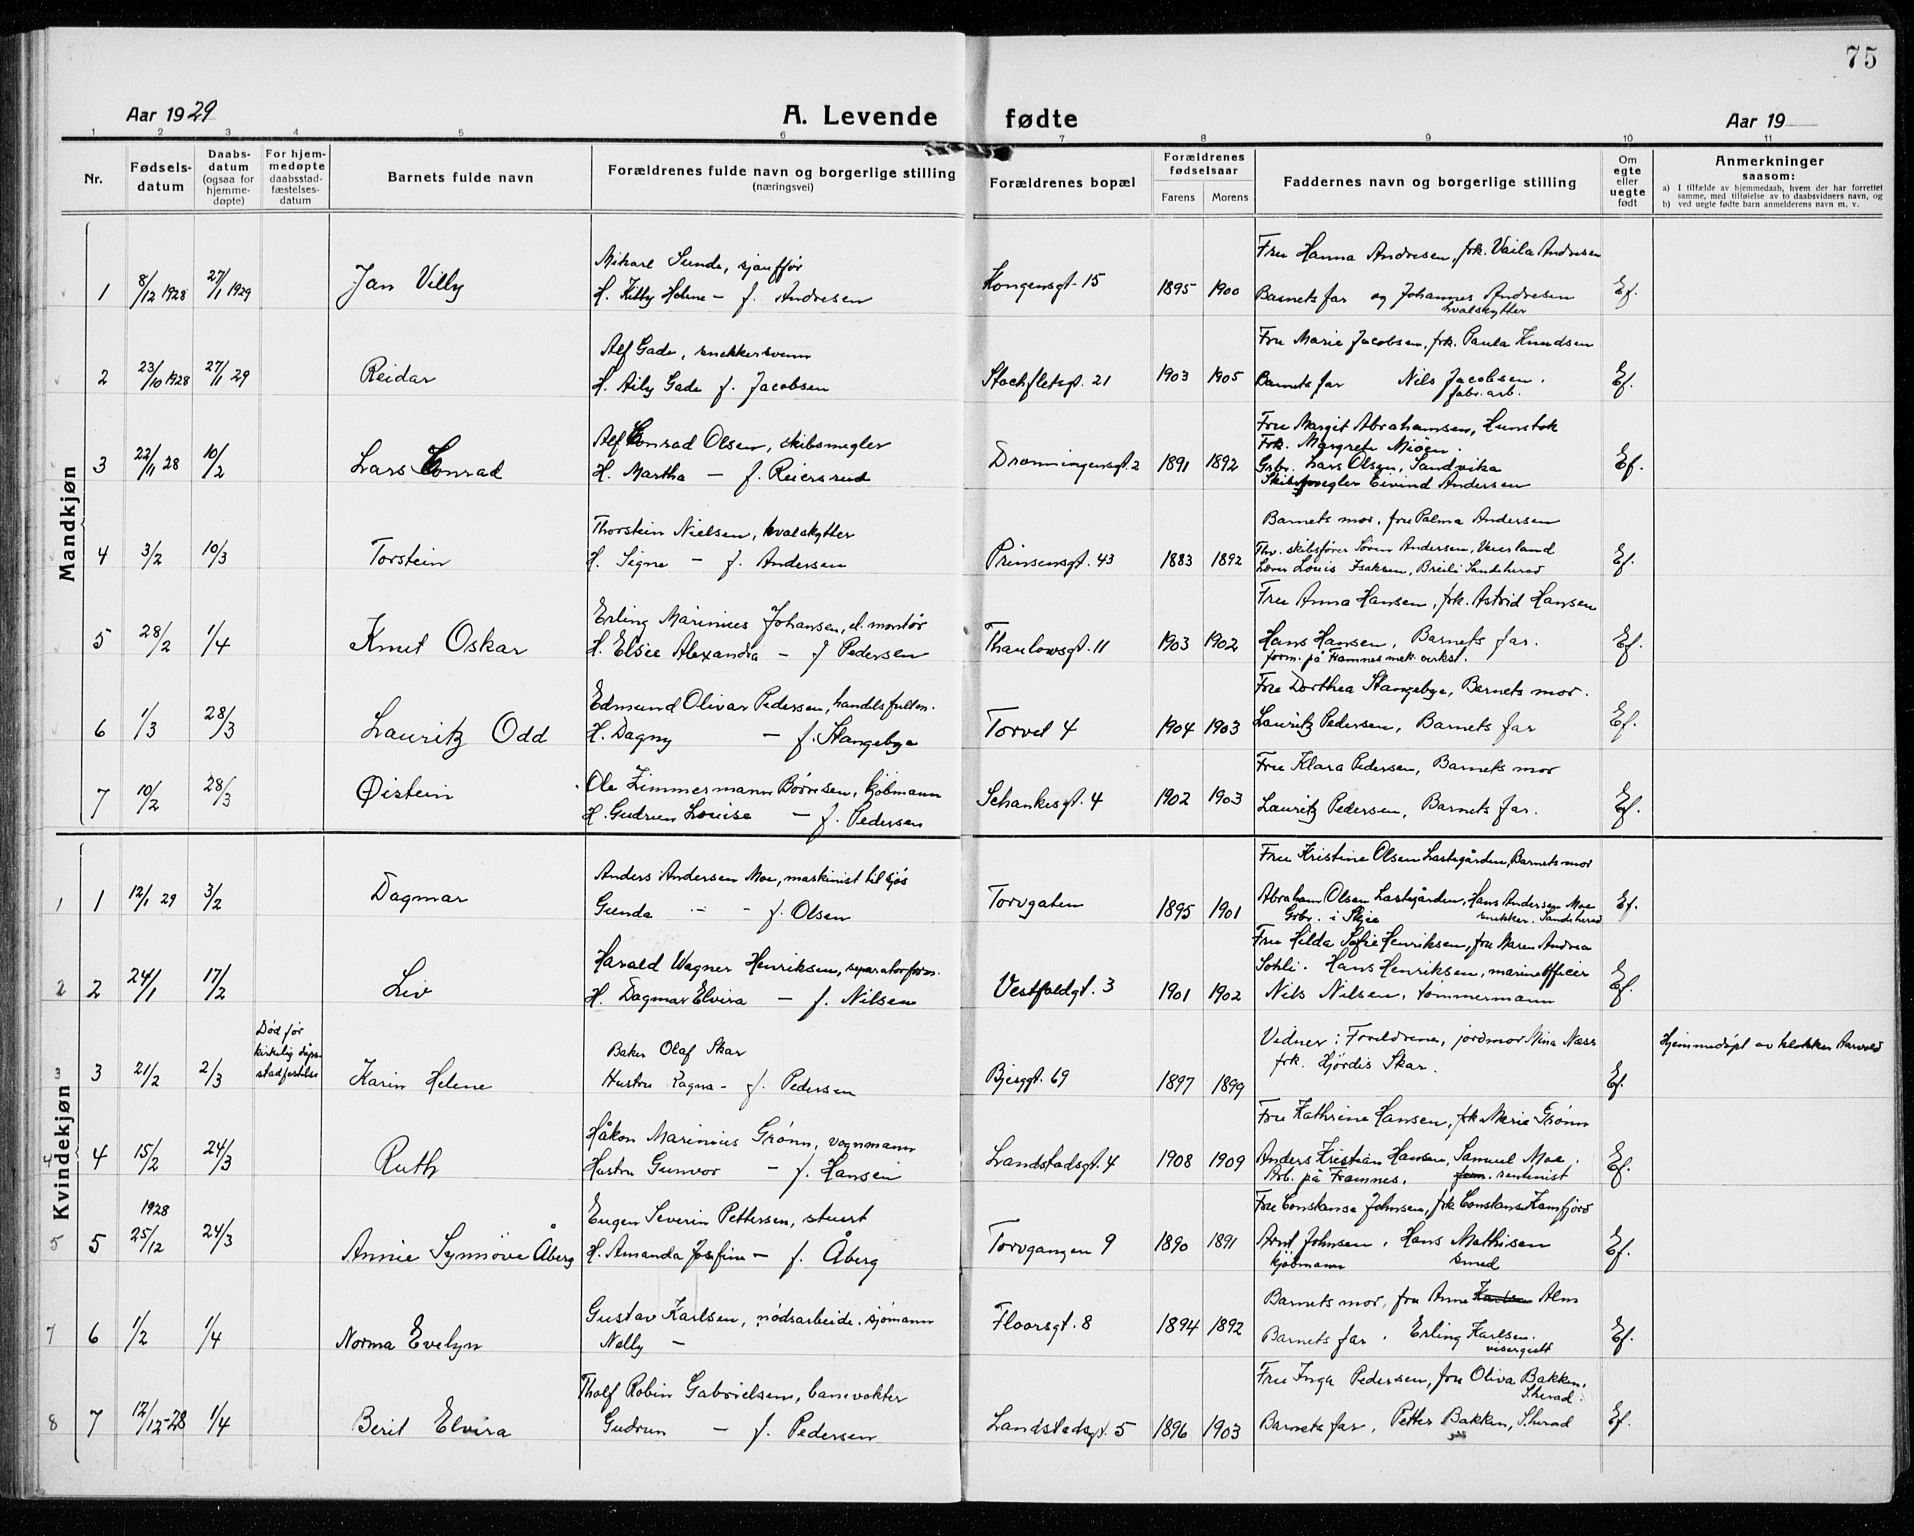 75
Aar 1929 A. Levende fødte Aar 19
1 2 3 4 5 6 7 8 9 10 11
Nr.
Fødsels-
datum
Daabs-
datum
(ogsaa for
hjemme-
døpte)
For hjem-
medøpte
daabsstad-
fæstelses-
datum
Barnets fulde navn
Forældrenes fulde navn og borgerlige stilling
(næringsvei)
Forældrenes bopæl
Forældrenes
fødselsaar
Farens Morens
Faddernes navn og borgerlige stilling
Om
egte
eller
uegte
født
Anmerkninger
saasom:
a) I tilfælde av hjemmedaab, hvem der har forrettet
samme, med tilføielse av to daabsvidners navn, og
b) ved uegte fødte barn anmelderens navn m. v.
Mandkjøn
Mikael Sunde, sjauffør Fru Hanna Andresen, frk. Vaila Andresen
1 8/12 1928 27/1 1929 Jan Villy H. Kitty Helene – f. Andresen Kongensgt. 15 1895 1900 Barnets far og Johannes Andresen Ef.
hvalskytter
Alf Gade, snekkersvenn Fru Marie Jacobsen, frk. Paula Knudsen
2 23/10 1928 27/1 29 Reidar H. Aily Gade f. Jacobsen Stockfletsgt. 21 1903 1905 Barnets far Nils Jacobsen. Ef.
fabr. arb.
Alf Conrad Olsen, skibsmegler Fru Margit Abrahamsen, Hunstok
Frk. Margrete Miøen.
3 22/11 28 10/2 Lars Conrad H. Martha – f. Reiersrud Dronningensgt. 2 1891 1892 Grbr. Lars Olsen, Sandvika Ef.
Skibsmegler Eivind Andersen
Thorstein Nielsen, hvalskytter Barnets mor, fru Palma Andersen
4 3/2 10/3 Torstein H. Signe – f. Andersen Prinsensgt. 43 1883 1892 Fhv. skibsfører Søren Andersen, Veierland Ef.
Lærer Louis Isaksen, Breili Sandeherad
Erling Marinius Johansen, el. montør Fru Anna Hansen, frk. Astrid Hansen
5 28/2 1/4 Knut Oskar H. Elsie Alexandra – f Pedersen Thaulowsgt. 11 1903 1902 Hans Hansen, Barnets far. Ef.
form. på Framnes mek. verkst.
Edmund Olivar Pedersen, handelsfullm. Fru Dorthea Stangebye, Barnets mor.
6 1/3 28/3 Lauritz Odd H. Dagny – f. Stangebye Torvet 4 1904 1903 Lauritz Pedersen, Barnets far Ef.
Ole Zimmermann Børresen, kjøbmann Fru Klara Pedersen, Barnets mor
7 10/2 28/3 Øistein H. Gudrun Louise – f. Pedersen Schankesgt. 4 1902 1903 Lauritz Pedersen, Barnets far. Ef.
Kvindekjøn
Anders Andersen Moe, maskinist til sjøs Fru Kristine Olsen Lastegården, Barnets mor
1 1 12/1 29 3/2 Dagmar Gunda – – f. Olsen Torvgaten 1895 1901 Abraham Olsen Lastegården, Hans Andersen Moe Ef.
Grbr. i Skjee snekker. Sandeherad
Harald Wagner Henriksen, separatorform. Fru Hilda Sofie Henriksen, fru Maren Andrea
Sohli. Hans Henriksen, marineofficer
2 2 24/1 17/2 Liv H. Dagmar Elvira – f. Nilsen Vestfoldgt. 3 1901 1902 Nils Nilsen, tømmermann Ef.
Død før
kirkelig dåps-
stadfestelse
Baker Olaf Skar Vidner: Foreldrene, jordmor Nina Næss Hjemmedøpt av klokker Aarvold
3 3 21/2 2/3 Karin Helene Hustru Ragna – f. Pedersen Bjerggt. 69 1897 1899 frk. Hjørdis Skar. Ef.
Håkon Marinius Grønn, vognmann Fru Kathrine Hansen, frk Marie Grønn
4 4 15/2 24/3 Ruth Hustru Gunvor – f. Hansen Landstadsgt. 4 1908 1909 Anders Kristian Hansen, Samuel Moe. Ef.
Arb. på Framnes.
Eugen Severin Pettersen, stuert Fru Constanse Johnsen, frk Constanse Kamfjord
5 5 1928 25/12 24/3 Annie Synnøve Åberg H. Amanda Josefine – f. Åberg Torvgangen 9 1890 1891 Arnt Johnsen, Hans Mathisen Ef.
kjøbmann smed
Gustav Karlsen, nødsarbeide. sjømann Barnets mor, fru Anne Karlsen Alm
7 6 1/2 1/4 Norma Evelyn Nelly – Floorsgt. 8 1894 1892 Barnets far. Erling Karlsen. Ef.
visergutt
Tholf Robin Gabrielsen, banevokter Fru Inga Pedersen, fru Oliva Bakken,
S.herad.
8 7 12/12-28 1/4 Berit Elvira Gudrun – f. Pedersen Landstadsgt. 5 1896 1903 Barnets far, Petter Bakken, S.herad Ef.